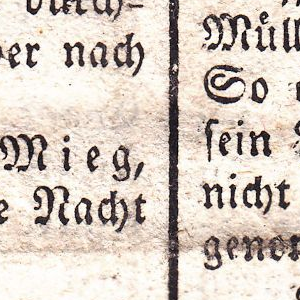 durch⸗
er nach
Mieg,
e Nacht
Müll
So
ſein
nicht
genom